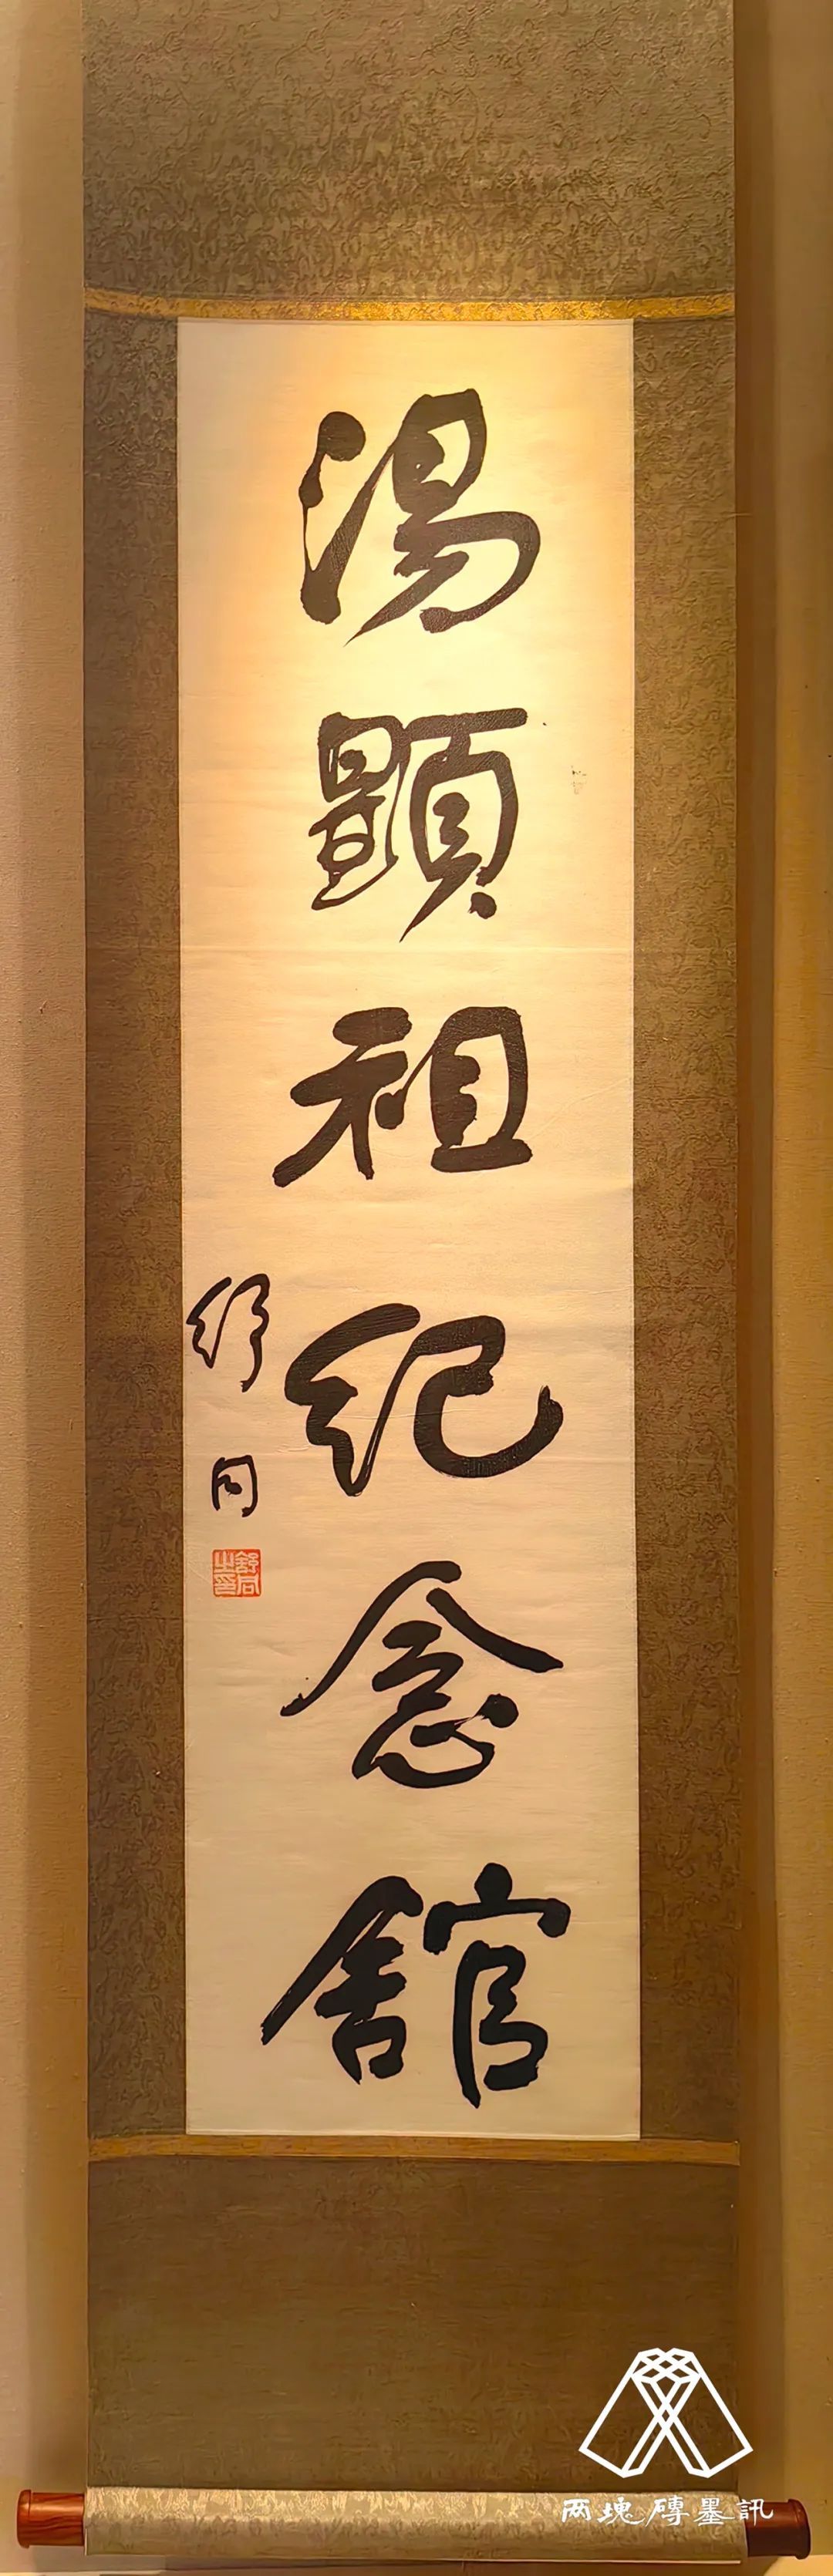 湯顯祖纪念館
舒同
舒同之印
两塊磚墨訊